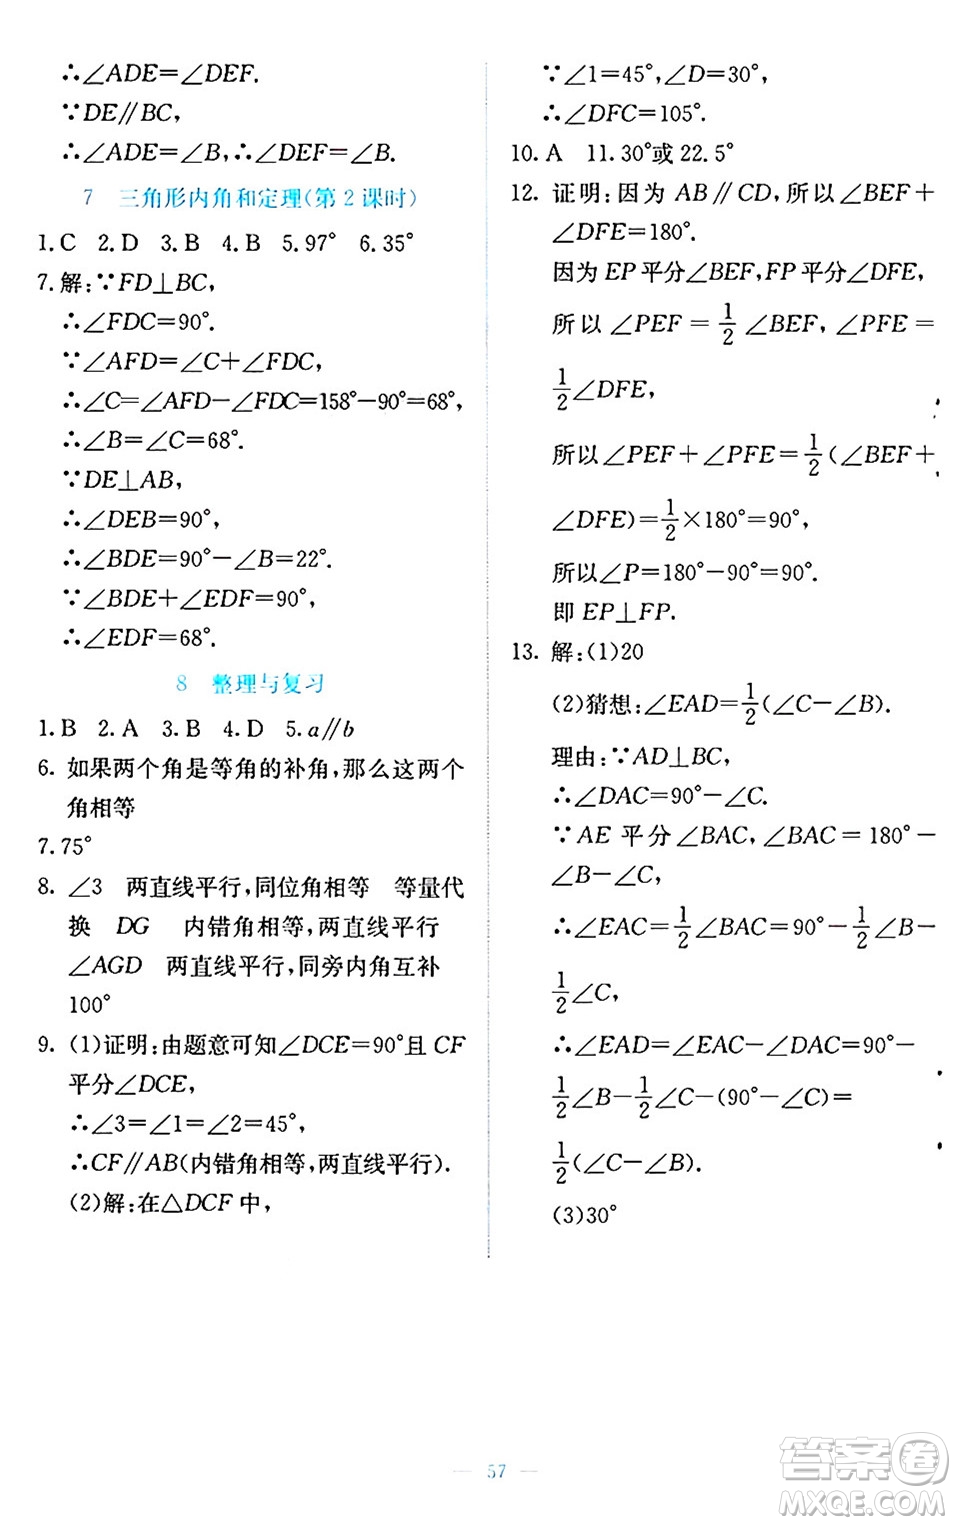 ∴∠ADE=∠DEF.
∵DE∥BC,
∴∠ADE=∠B,∴∠DEF=∠B.
7 三角形内角和定理(第2课时)
1.C 2.D 3.B 4.B 5.97° 6.35°
7.解:∵FD⊥BC,
∴∠FDC=90°.
∵∠AFD=∠C+∠FDC,
∴∠C=∠AFD-∠FDC=158°-90°=68°,
∴∠B=∠C=68°.
∵DE⊥AB,
∴∠DEB=90°,
∴∠BDE=90°-∠B=22°.
∵∠BDE+∠EDF=90°,
∴∠EDF=68°.
8 整理与复习
1.B 2.A 3.B 4.D 5.a∥b
6. 如果两个角是等角的补角,那么这两个
角相等
7.75°
8. ∠3 两直线平行,同位角相等 等量代
换 DG 内错角相等,两直线平行
∠AGD 两直线平行,同旁内角互补
100°
9. (1)证明:由题意可知∠DCE=90°且CF
平分∠DCE,
∴∠3=∠1=∠2=45°,
∴CF∥AB(内错角相等,两直线平行).
(2)解:在△DCF中,
∵∠1=45°,∠D=30°,
∴∠DFC=105°.
10. A 11.30°或22.5°
12. 证明:因为 AB∥CD,所以∠BEF+
∠DFE=180°.
因为EP平分∠BEF,FP平分∠DFE,
所以∠PEF=1/2∠BEF,∠PFE=
1/2∠DFE,
所以∠PEF+∠PFE=1/2(∠BEF+
∠DFE)=1/2×180°=90°,
所以∠P=180°-90°=90°.
即EP⊥FP.
13. 解:(1)20
(2)猜想:∠EAD=1/2(∠C-∠B).
理由:∵AD⊥BC,
∴∠DAC=90°-∠C.
∵AE平分∠BAC,∠BAC=180°-
∠B-∠C,
∴∠EAC=1/2∠BAC=90°-1/2∠B-
1/2∠C,
∴∠EAD=∠EAC-∠DAC=90°-
1/2∠B-1/2∠C-(90°-∠C)=
1/2(∠C-∠B).
(3)30°
57
答案圈
MXQE.COM